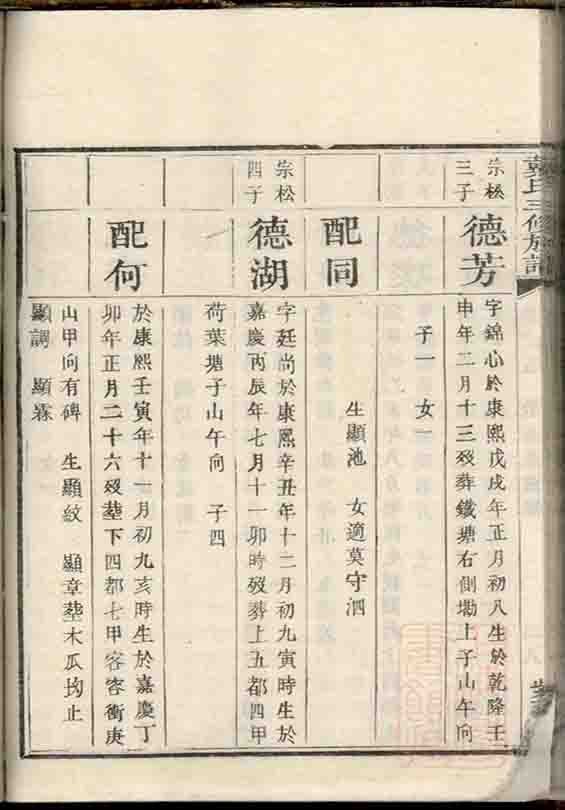 氏三修族譜
宗松三子
德芳
字錦心於康熙戊戌年正月初八生於乾隆壬
申年二月十三歿葬鐵塘右側墈上子山午向
子一 女一
配同
生顯池 女適莫守泗
宗松四子
德湖
字廷尚於康熙辛丑年十二月初九寅時生於
嘉慶丙辰年七月十一卯時歿葬上五都四甲
荷葉塘子山午向 子四
配何
於康熙壬寅年十一月初九亥時生於嘉慶丁
卯年正月二十六歿塟下四都七甲容容衝庚
山甲向有碑 生顯紋 顯章塟木瓜坳止
顯調 顯霖